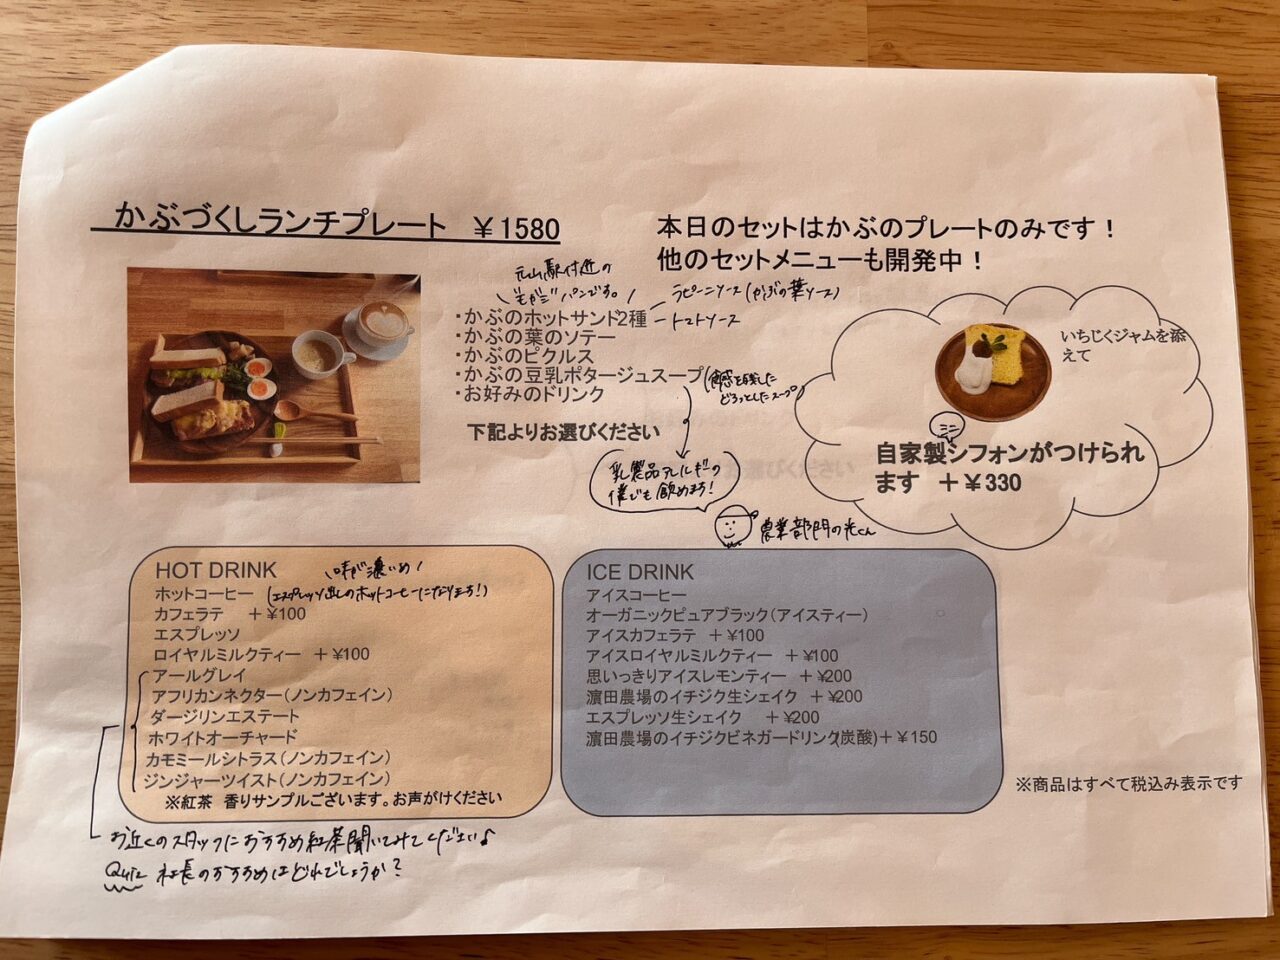 かぶづくしランチプレート ￥1580
本日のセットはかぶのプレートのみです！
他のセットメニューも開発中！
元山駅付近の
パンです。
・かぶのホットサンド2種
ラビーニソース(かぶの葉ソース)
トマトソース
・かぶの葉のソテー
・かぶのピクルス
・かぶの豆乳ポタージュスープ
(食感を残した
どろっとしたスープ)
・お好みのドリンク
下記よりお選びください
乳製品アレルギーの
僕でも飲めます！
農業部門の光くん
いちじくジャムを添
えて
ミニ
自家製シフォンがつけられ
ます ＋￥330
HOT DRINK
味が濃いめ
ホットコーヒー (エスプレッソ出しのホットコーヒーになります！)
カフェラテ ＋￥100
エスプレッソ
ロイヤルミルクティー ＋￥100
アールグレイ
アフリカンネクター（ノンカフェイン）
ダージリンエステート
ホワイトオーチャード
カモミールシトラス（ノンカフェイン）
ジンジャーツイスト（ノンカフェイン）
※紅茶 香りサンプルございます。お声がけください
お近くのスタッフにおすすめ紅茶聞いてみてください♪
Quiz 社長のおすすめはどれでしょうか？
ICE DRINK
アイスコーヒー
オーガニックピュアブラック（アイスティー）
アイスカフェラテ ＋￥100
アイスロイヤルミルクティー ＋￥100
思いっきりアイスレモンティー ＋￥200
濵田農場のイチジク生シェイク ＋￥200
エスプレッソ生シェイク ＋￥200
濵田農場のイチジクビネガードリンク(炭酸)＋￥150
※商品はすべて税込み表示です